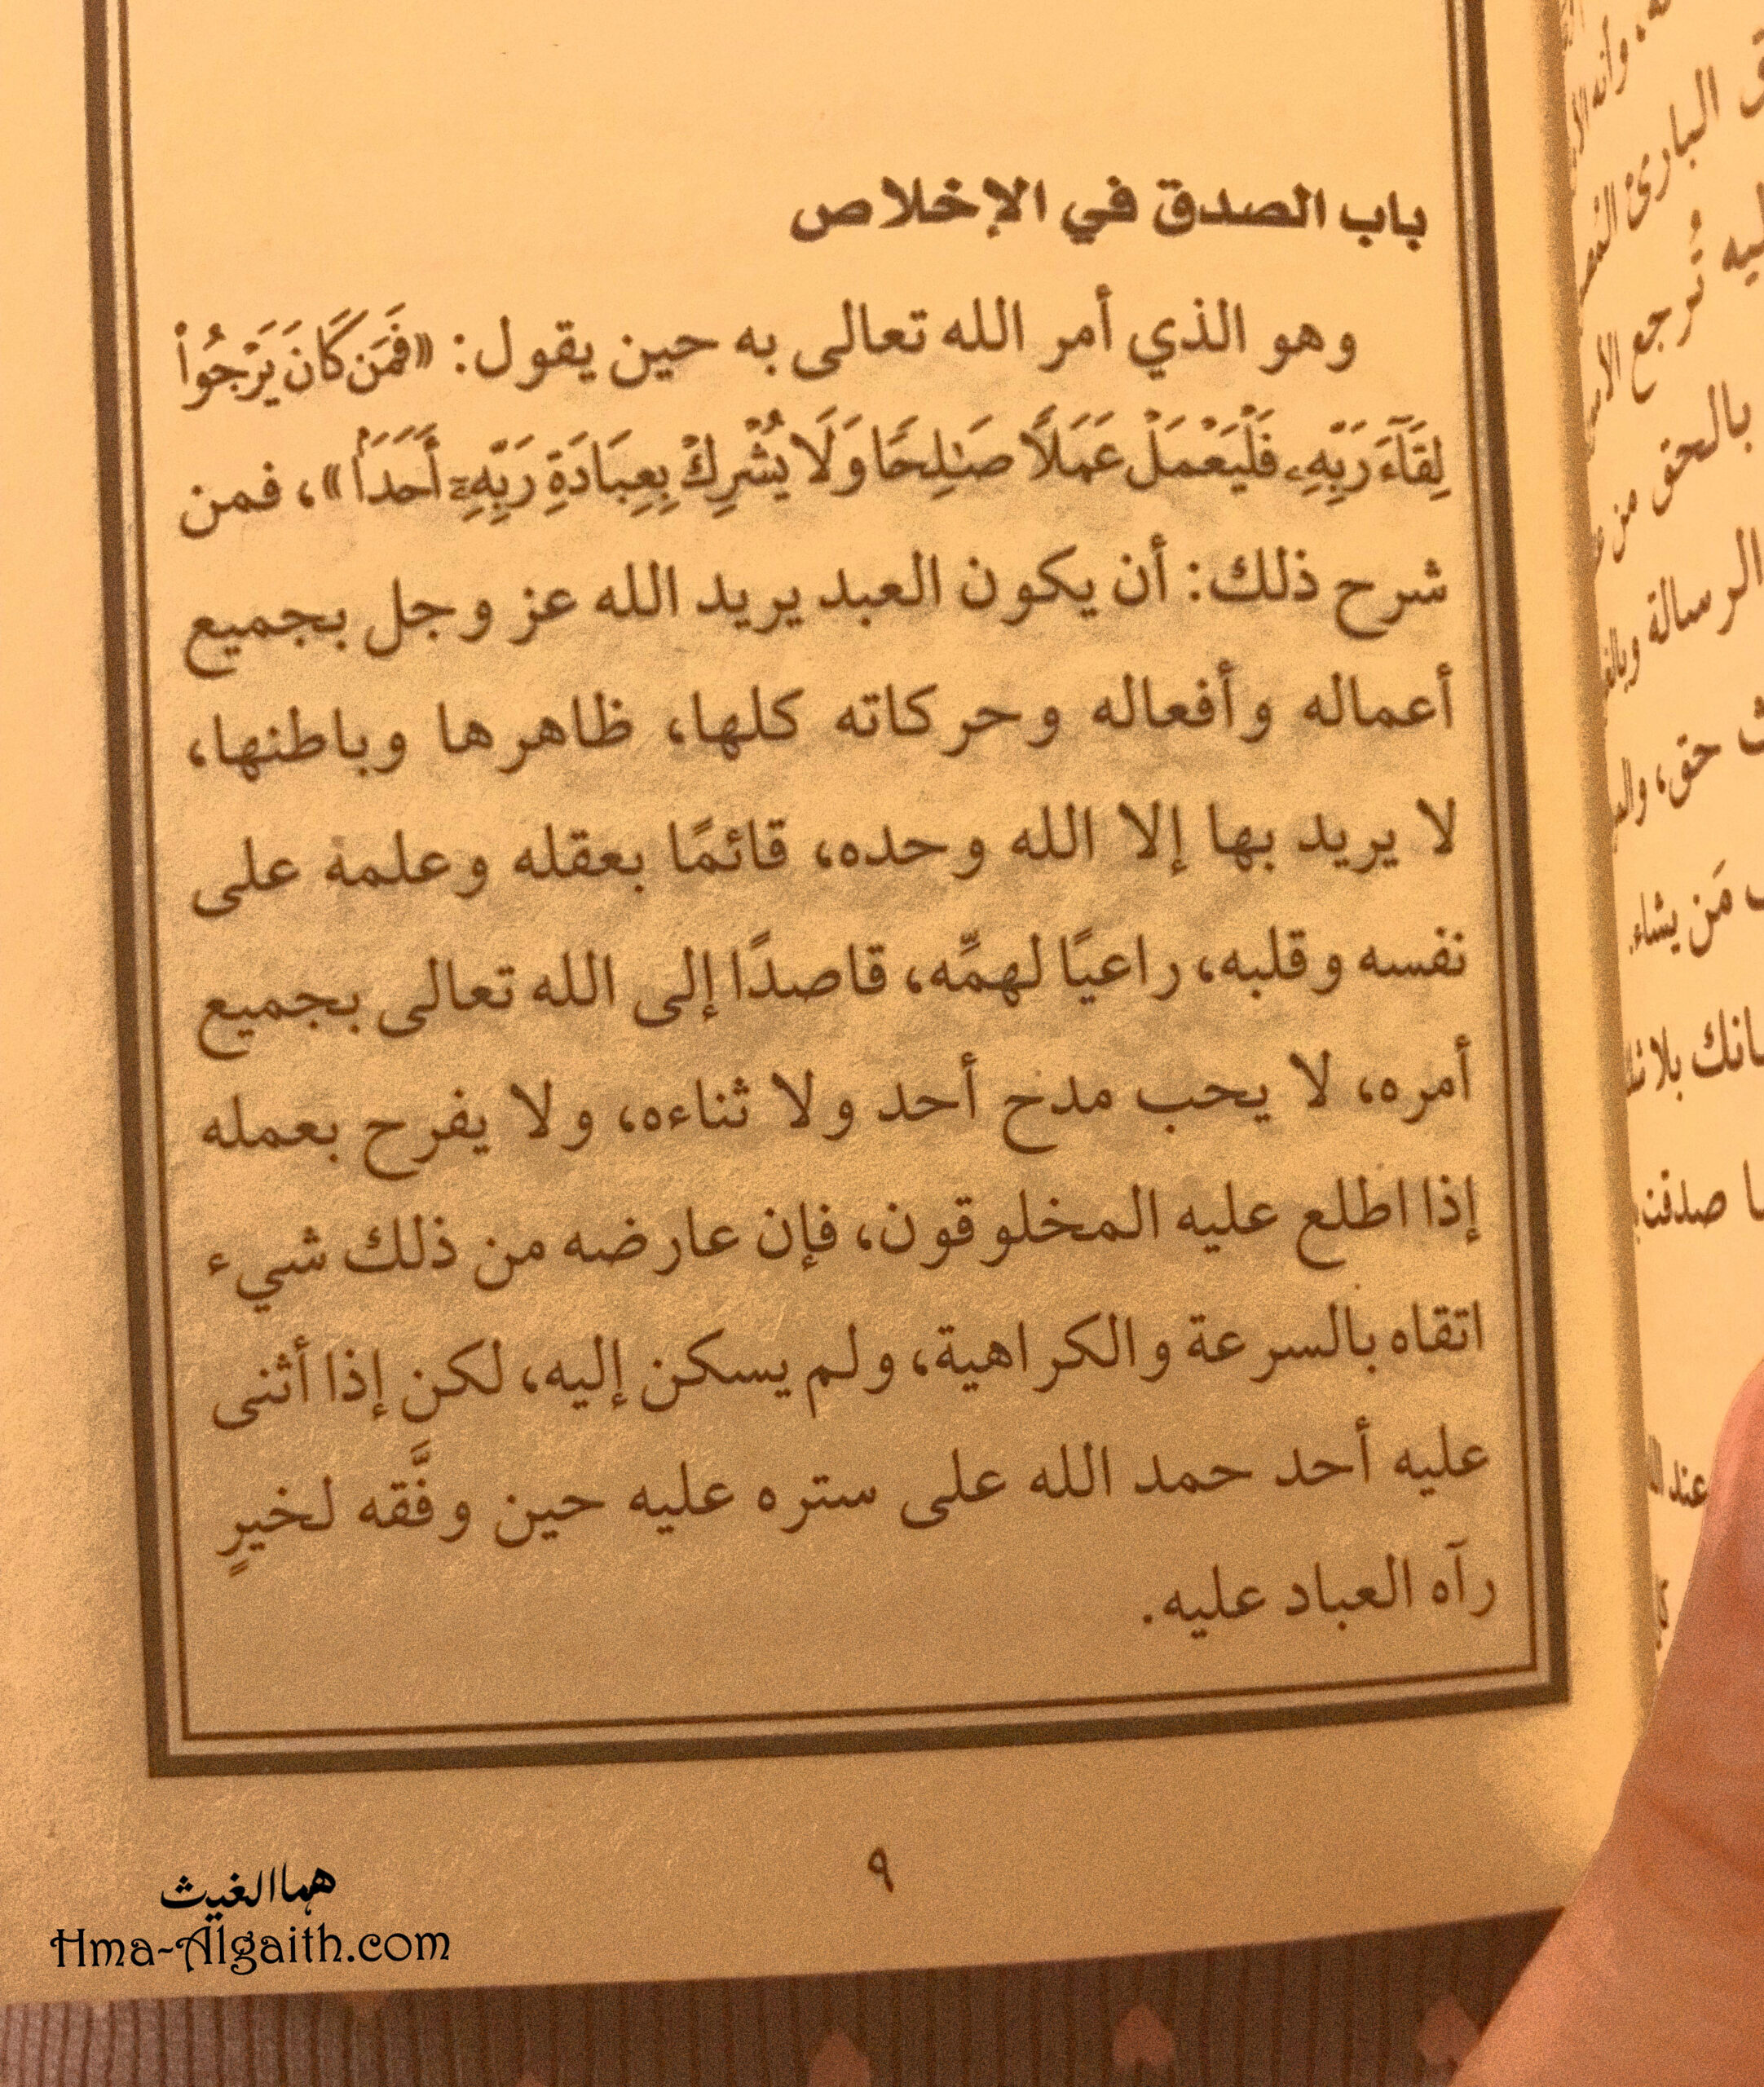 باب الصدق في الإخلاص
وهو الذي أمر الله تعالى به حين يقول: «فَمَن كَانَ يَرْجُواْ
لِقَآءَ رَبِّهِۦ فَلْيَعْمَلْ عَمَلًا صَٰلِحًا وَلَا يُشْرِكْ بِعِبَادَةِ رَبِّهِۦٓ أَحَدَۢا»، فمن
شرح ذلك: أن يكون العبد يريد الله عز وجل بجميع
أعماله وأفعاله وحركاته كلها، ظاهرها وباطنها،
لا يريد بها إلا الله وحده، قائمًا بعقله وعلمه على
نفسه وقلبه، راعيًا لهمِّه، قاصدًا إلى الله تعالى بجميع
أمره، لا يحب مدح أحد ولا ثناءه، ولا يفرح بعمله
إذا اطلع عليه المخلوقون، فإن عارضه من ذلك شيء
اتقاه بالسرعة والكراهية، ولم يسكن إليه، لكن إذا أثنى
عليه أحد حمد الله على ستره عليه حين وفَّقه لخيرٍ
رآه العباد عليه.
٩
هما الغيث
Hma-Algaith.com
البارئ
تُرجع
بالحق من
الرسالة
حق،
مَن يشاء.
صدقت
عند